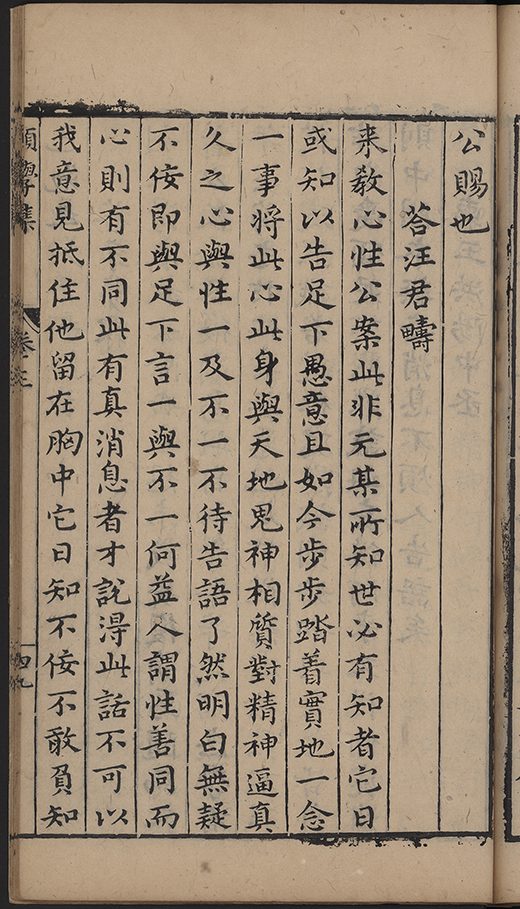 公賜也
荅汪君疇
来教心性公案此非元某所知世必有知者它日
或知以告足下愚意且如今步步踏着實地一念
一事將此心此身與天地鬼神相質對精神逼真
久之心與性一及不一不待告語了然明白無疑
不佞即與足下言一與不一何益人謂性善同而
心則有不同此有真消息者才說得此話不可以
我意見抵住他留在胸中它日知不佞不敢負知
願學集
卷之三
四九